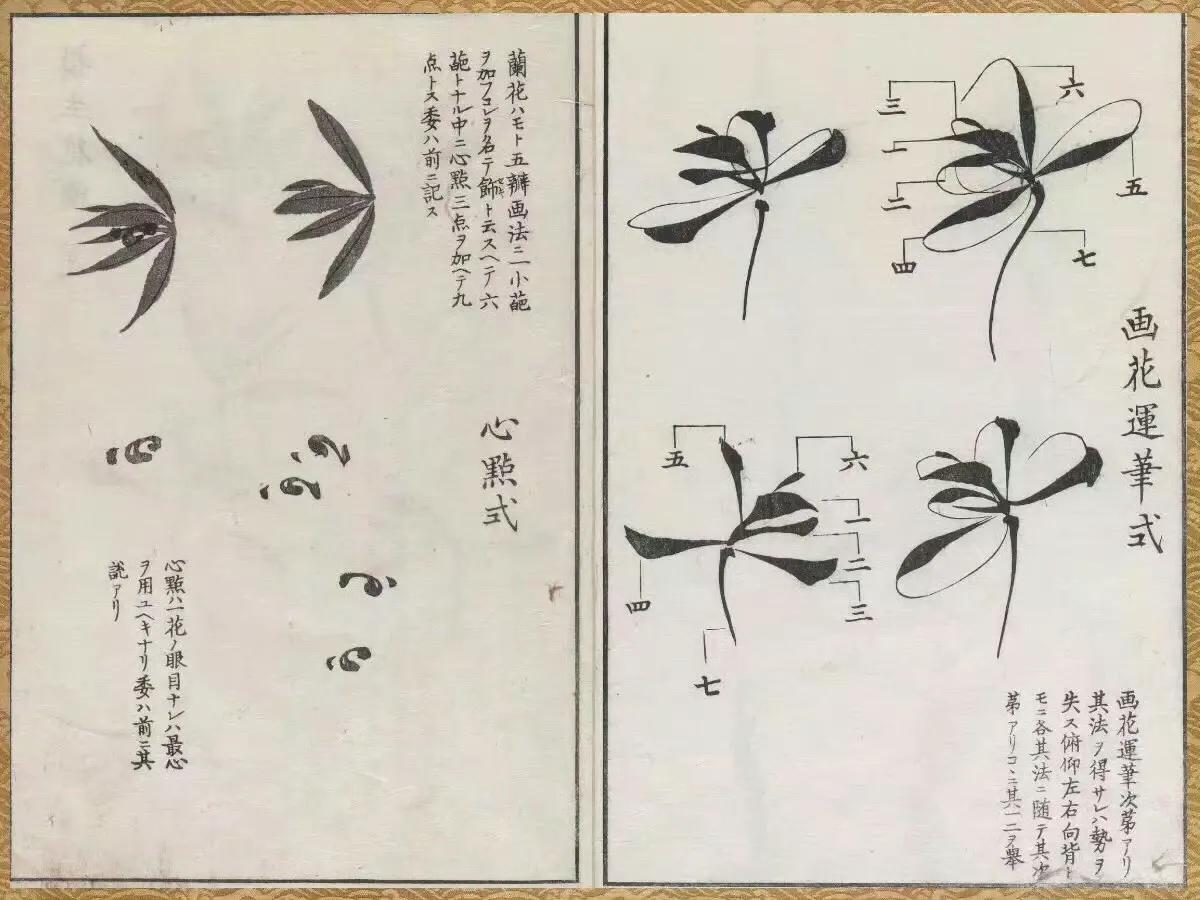 画花運筆式
六
三
一
二
五
四
七
五
六
一
二
三
四
七
画花運筆次第アリ
其法ヲ得サレハ勢ヲ
失ス俯仰左右向背ト
モニ各其法ニ随テ其次
第アリコヽニ其一二ヲ舉
蘭花ハモト五瓣画法ニ一小葩
ヲ加フコレヲ名テ飾ト云スヘテ六
葩トナル中ニ心點三点ヲ加ヘテ九
点トス委ハ前ニ記ス
心點式
心點ハ一花ノ眼目ナレハ最心
ヲ用ユヘキナリ委ハ前ニ其
説アリ